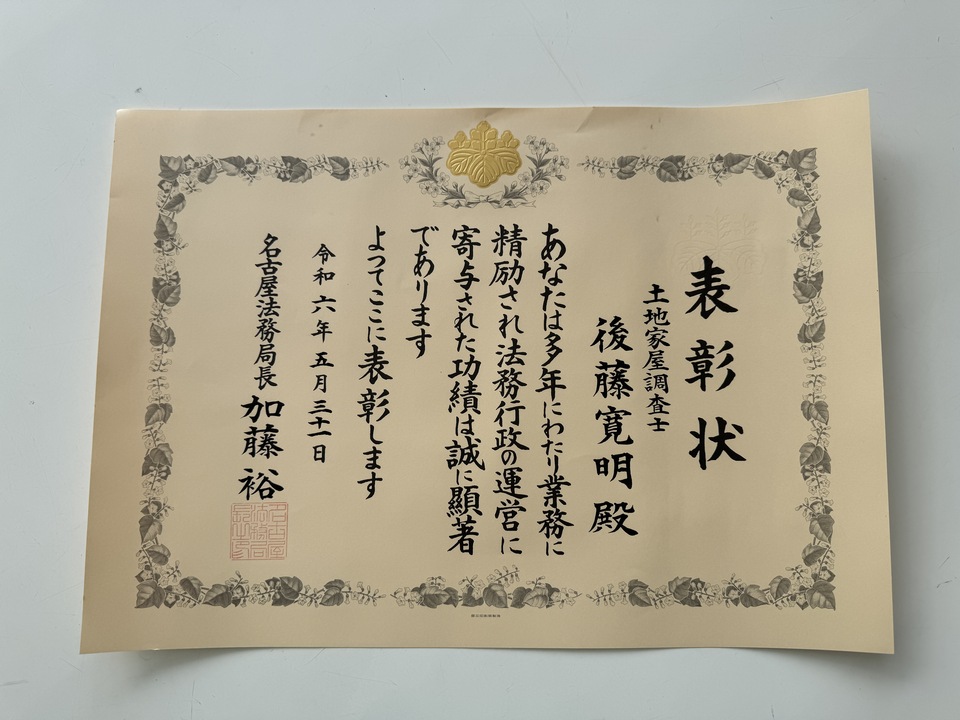 表彰状
土地家屋調査士
後藤寛明殿
あなたは多年にわたり業務に
精励され法務行政の運営に
寄与された功績は誠に顕著
であります
よってここに表彰します
令和六年五月三十一日
名古屋法務局長 加藤裕